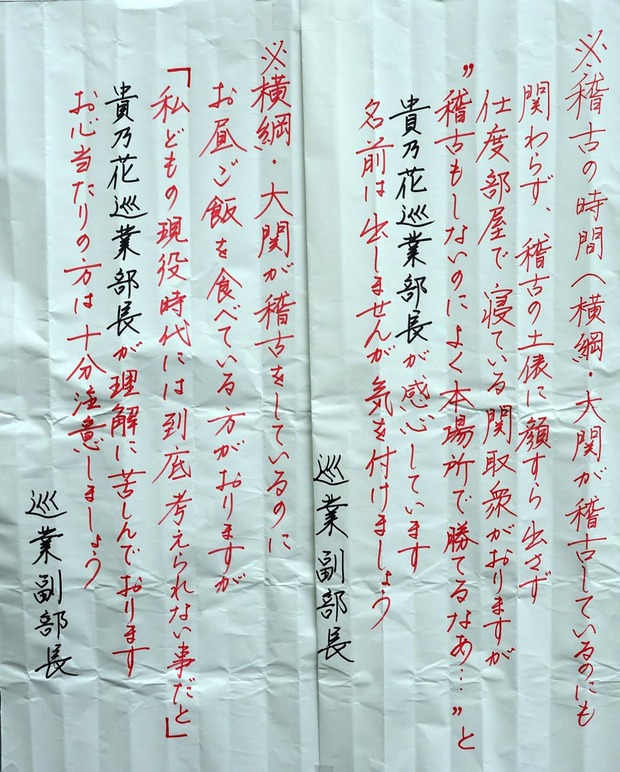 ※稽古の時間へ横綱・大関が稽古しているのにも
関わらず、稽古の土俵に顔すら出さず
仕度部屋で寝ている関取衆がおりますが
"稽古もしないのによく本場所で勝てるなあ…"と
貴乃花巡業部長が感心しています
名前は出しませんが気を付けましょう
巡業副部長
※横綱・大関が稽古をしているのに
お昼ご飯を食べている方がおりますが
「私どもの現役時代には到底考えられない事だと」
貴乃花巡業部長が理解に苦しんでおります
お心当たりの方は十分注意しましょう
巡業副部長